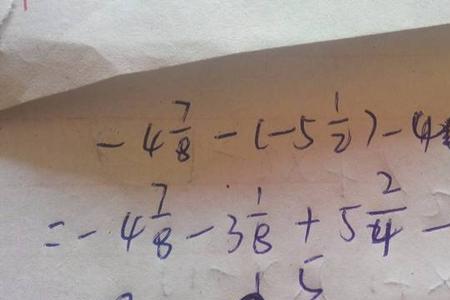 -4 7/8 - (-5 1/2) - 4
= -4 7/8 - 3 1/8 + 5 2/4 -